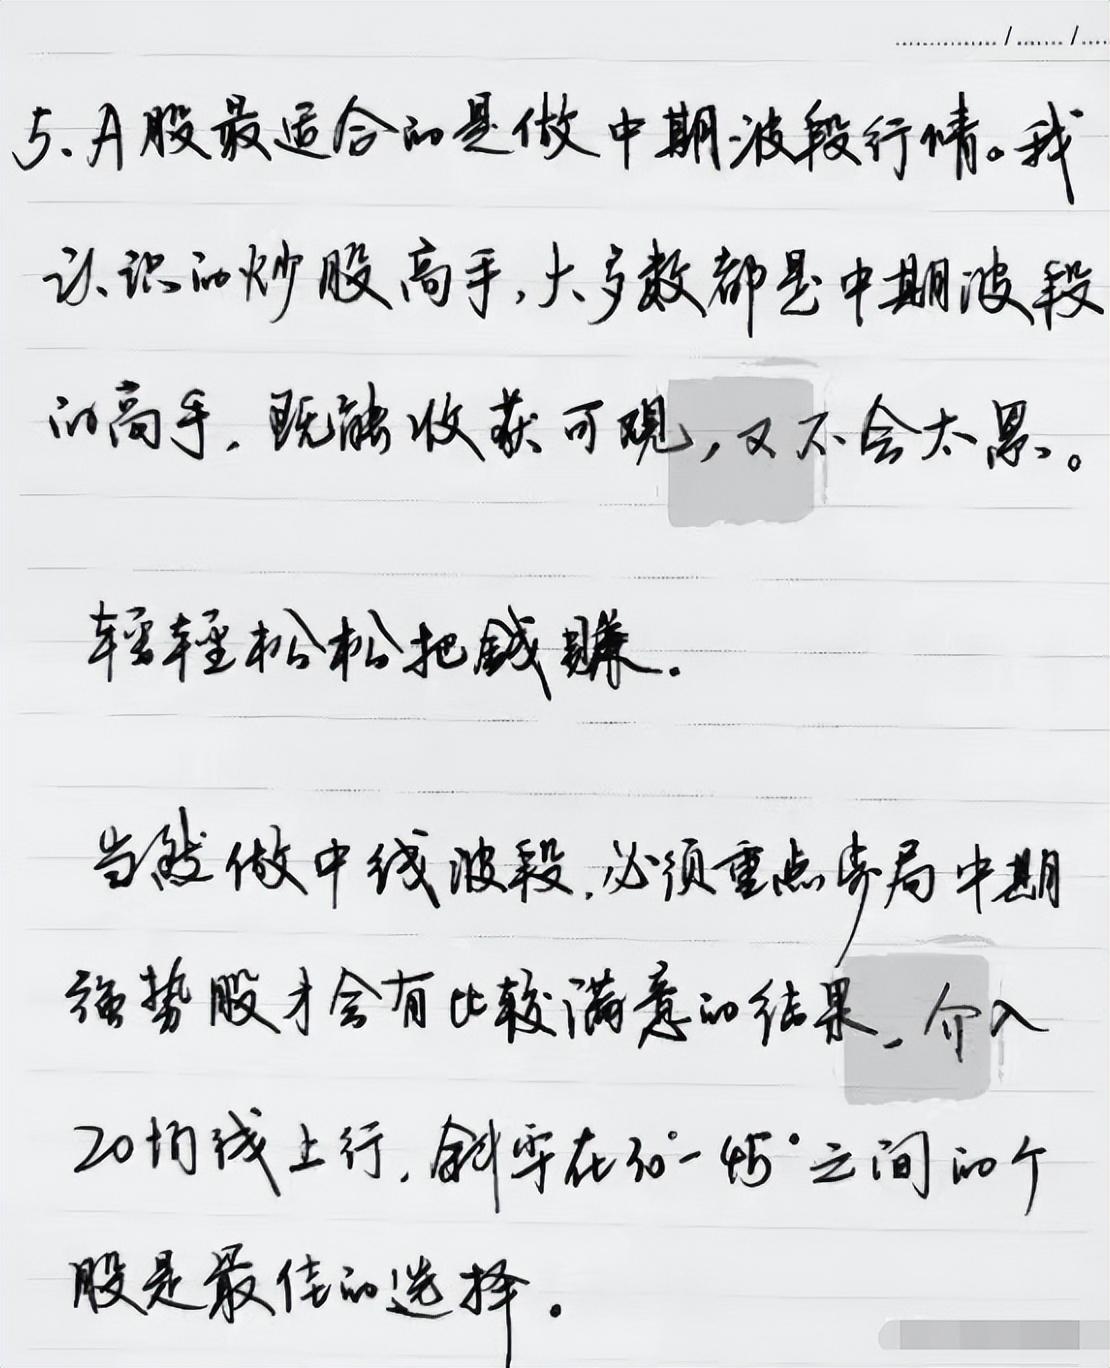 5、A股最适合的是做中期波段行情。我
认识的炒股高手,大多数都是中期波段
的高手,既能收获可观,又不会太累。
轻輕松松把錢賺.
当然做中线波段,必须重点布局中期
强势股才会有比较满意的结果,介入
20均线上行,斜率在30°-45°之间的个
股是最佳的选择.